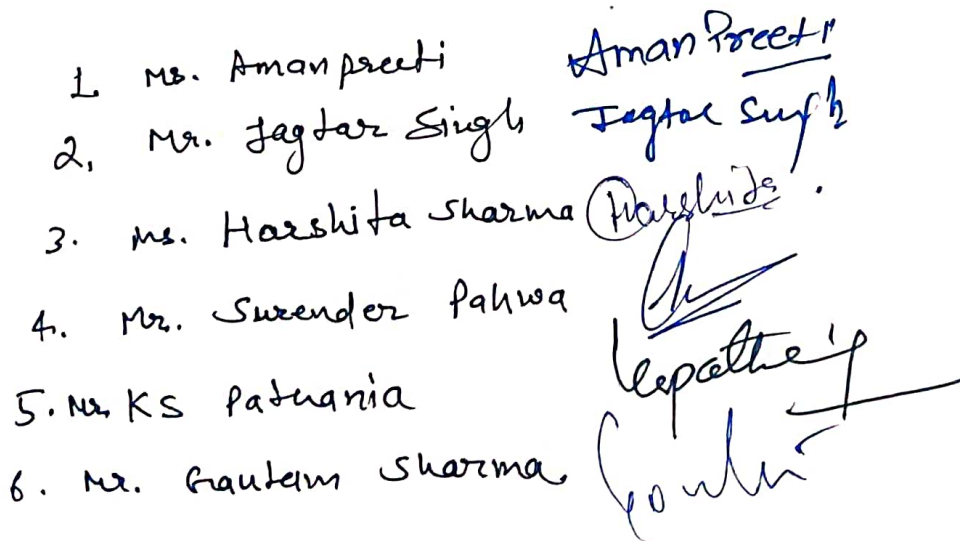 1. Ms. Amanpreeti AmanPreeti
2. Mr. Jagtar Singh Jagtar Singh
3. Ms. Harshita Sharma Harshita
4. Mr. Surender Pahwa
5. Mr. KS Pathania
6. Mr. Gautam Sharma